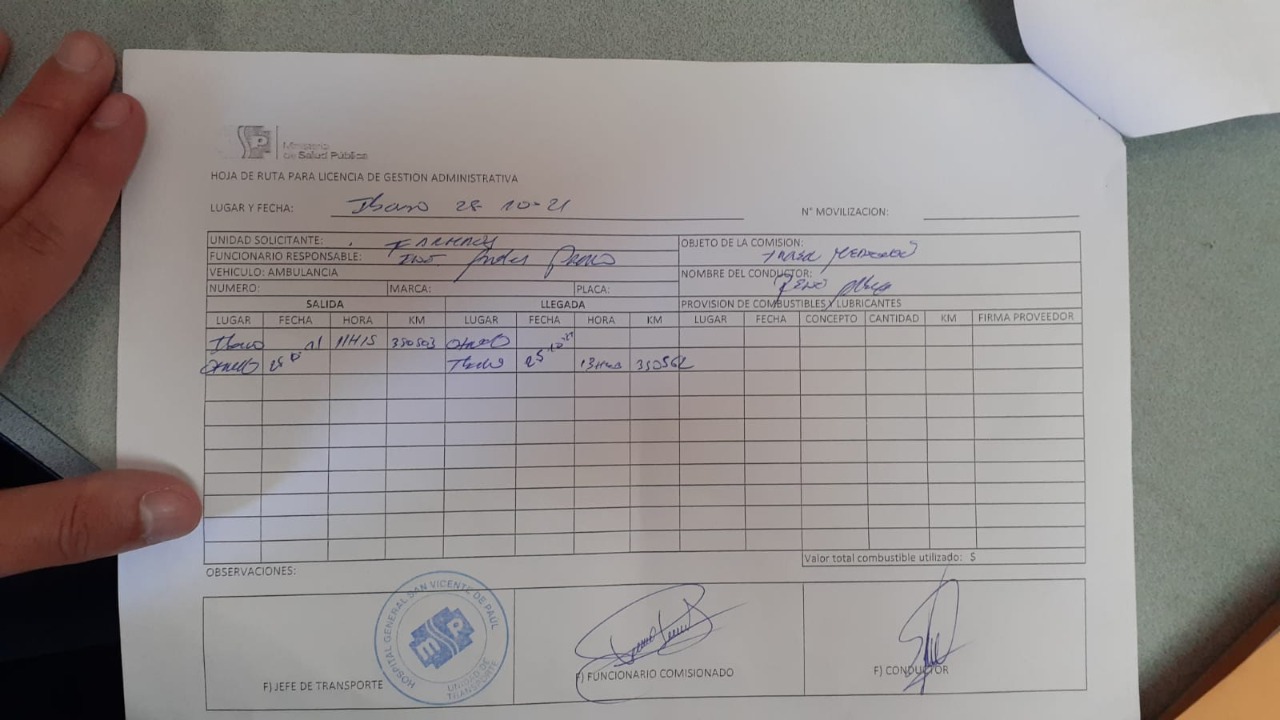 Ministerio
de Salud Pública
HOJA DE RUTA PARA LICENCIA DE GESTION ADMINISTRATIVA
LUGAR Y FECHA: Ibarra 10-21
N° MOVILIZACION:
UNIDAD SOLICITANTE: FARMACIA
OBJETO DE LA COMISION:
FUNCIONARIO RESPONSABLE:
VEHICULO: AMBULANCIA
NOMBRE DEL CONDUCTOR:
NUMERO: MARCA: PLACA:
SALIDA LLEGADA PROVISION DE COMBUSTIBLES Y LUBRICANTES
LUGAR FECHA HORA KM LUGAR FECHA HORA KM LUGAR FECHA CONCEPTO CANTIDAD KM FIRMA PROVEEDOR
Ibarra 11H15 350503 Otavalo
Otavalo Ibarra 350562
Valor total combustible utilizado: $
OBSERVACIONES:
HOSPITAL GENERAL SAN VICENTE DE PAUL
msp
UNIDAD DE
TRANSPORTE
F) JEFE DE TRANSPORTE
F) FUNCIONARIO COMISIONADO
F) CONDUCTOR